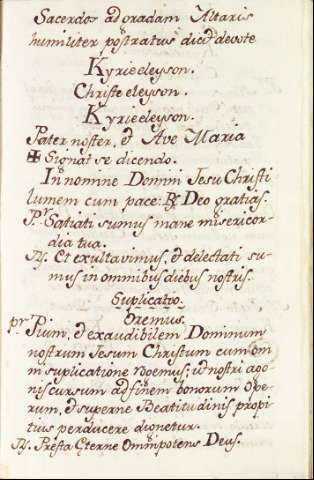 Sacerdos ad oradam Altaris
humiliter postratus dicat devote
Kyrie eleyson.
Christe eleyson.
Kyrie eleyson.
Pater noster, et Ave Maria
✠ Signat se dicendo.
In nomine Domini Jesu Christi
lumem cum pace: ℟. Deo gratias.
Pr. Satiati sumus mane misericor-
dia tua.
℟. Et exultavimus, et delectati su-
mus in omnibus diebus nostris.
Suplicatio.
Oremus.
pr Pium, et exaudibilem Dominum
nostrum Jesum Christum cum om
ni suplicatione rogemus; ut nostri ago
nis cursum ad finem bonorum ope
rum, et superne Beatitudinis propi
tius perducere dignetur.
℟. Presta Eterne Omnipotens Deus.